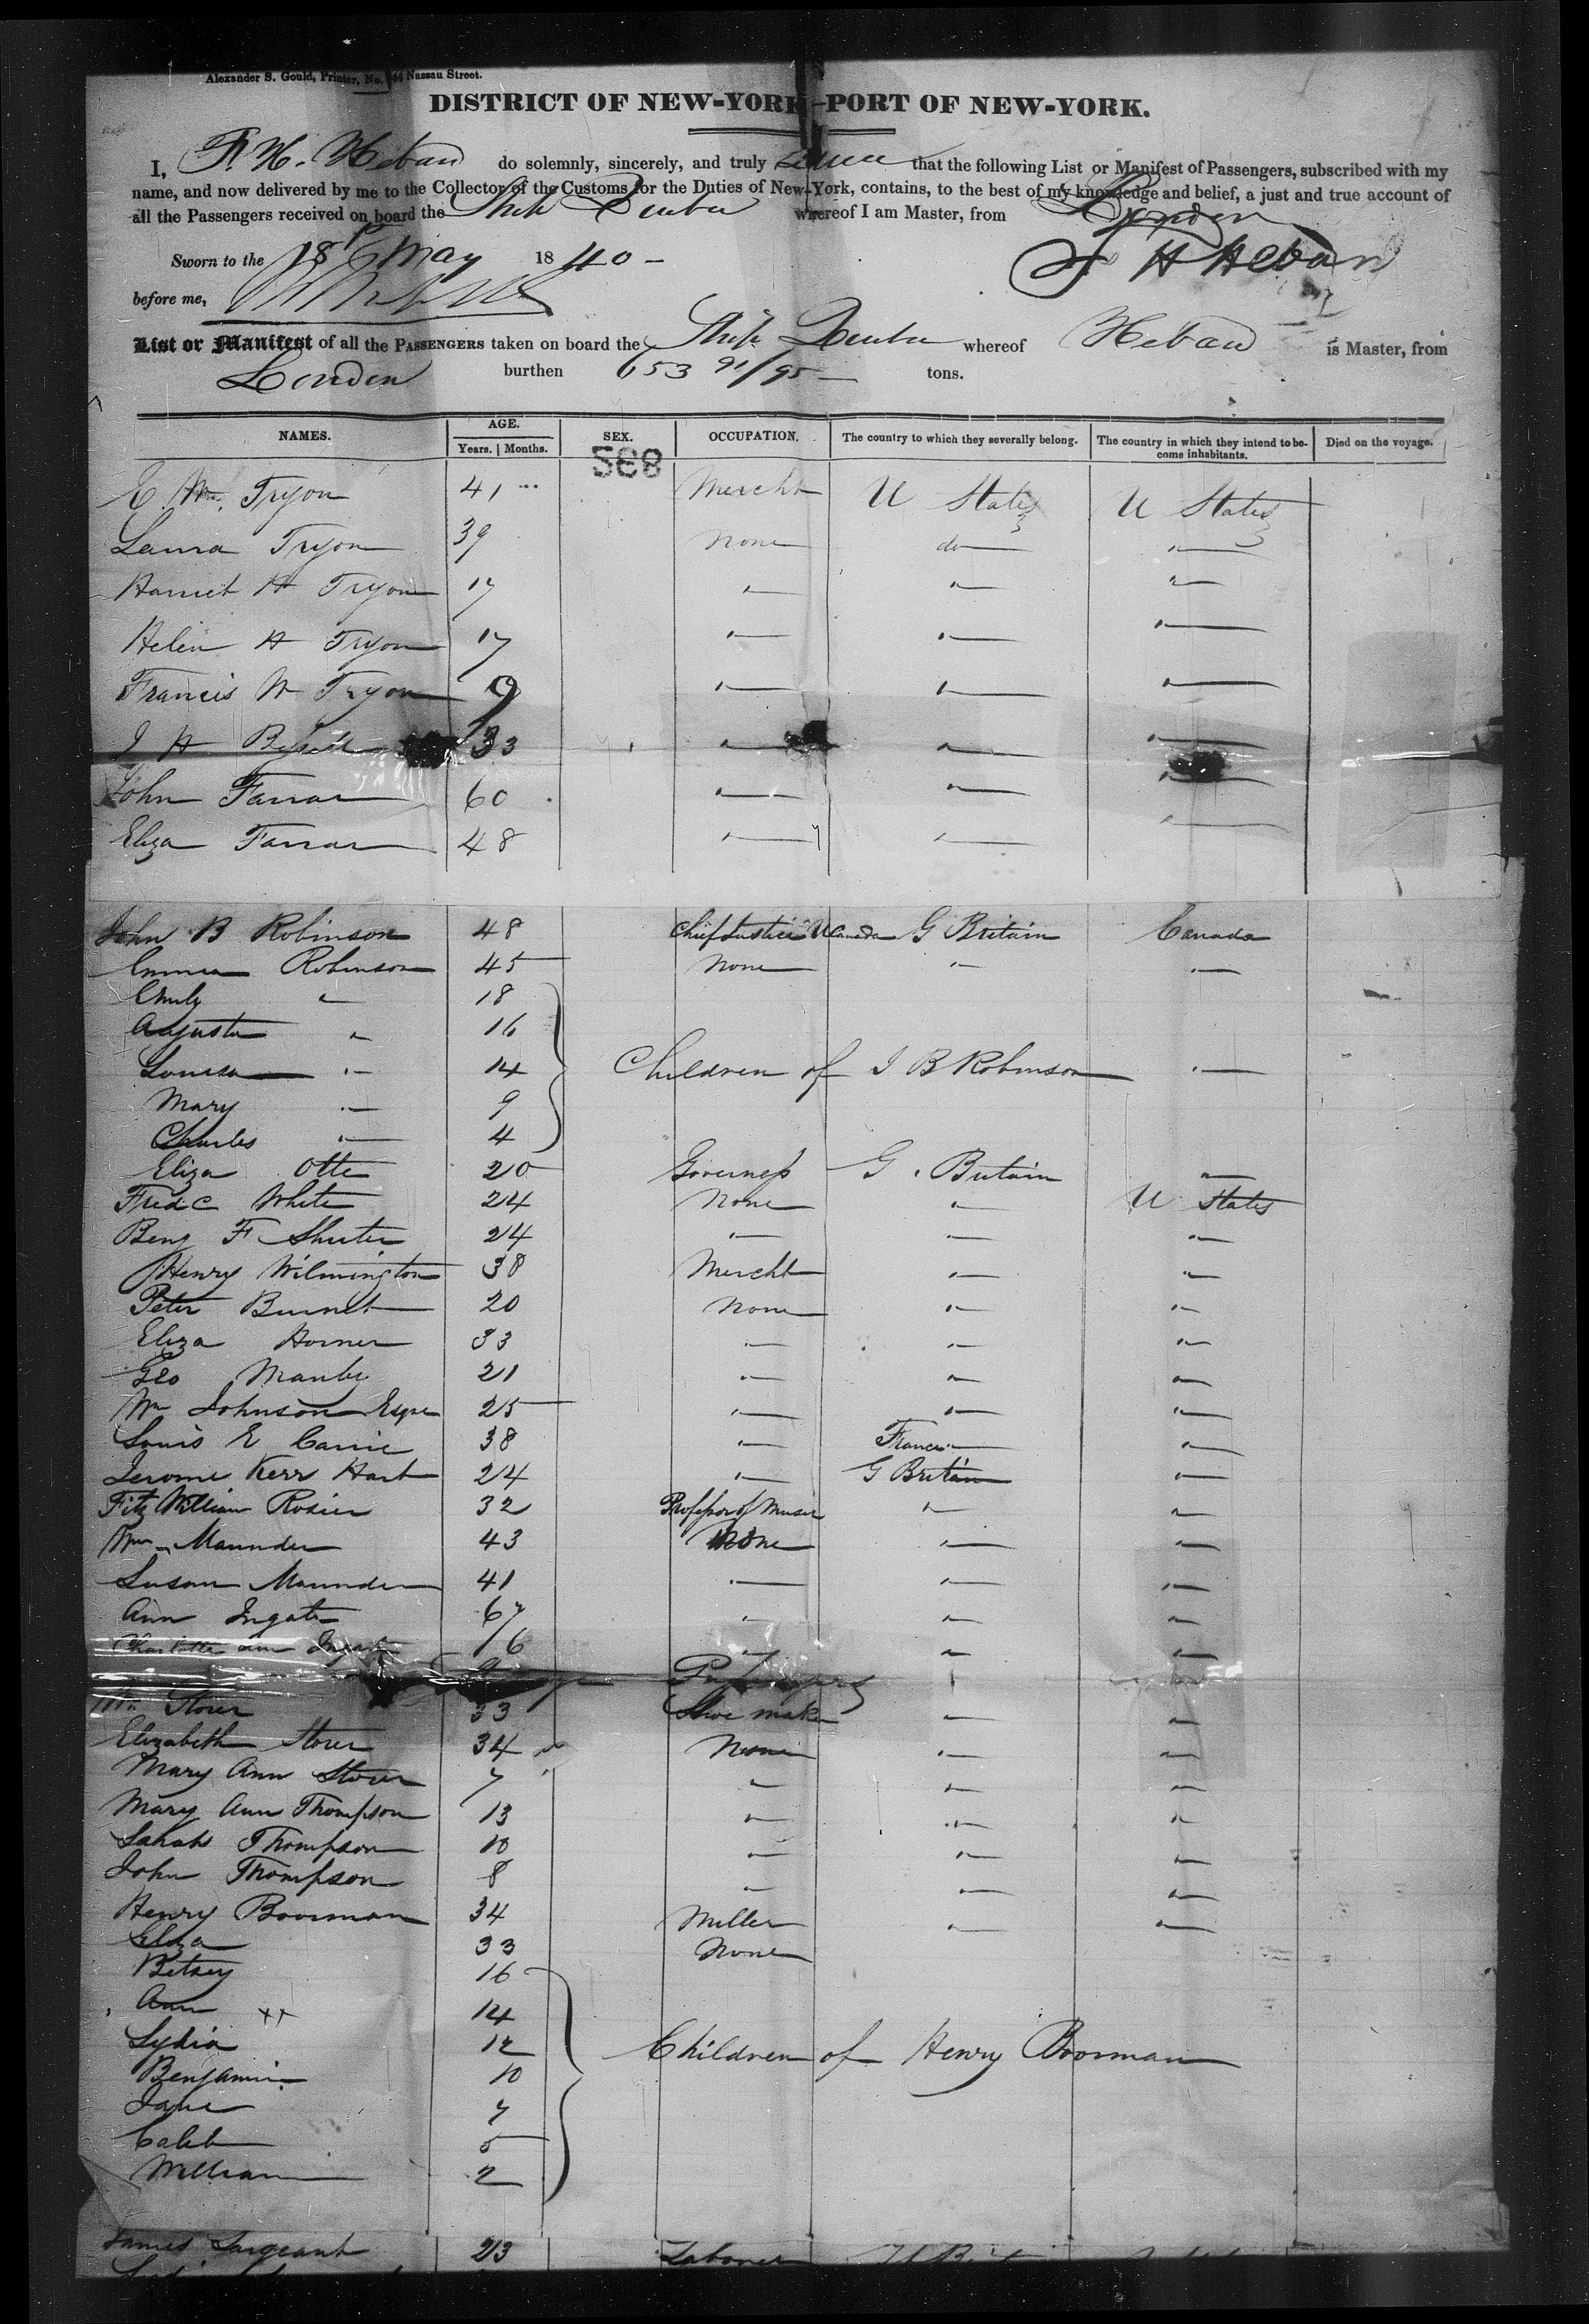 Alexander S. Gould, Printer, No. 144 Nassau Street.
DISTRICT OF NEW-YORK—PORT OF NEW-YORK.
I, F. H. Heban do solemnly, sincerely, and truly that the following List or Manifest of Passengers, subscribed with my
name, and now delivered by me to the Collector of the Customs for the Duties of New-York, contains, to the best of my knowledge and belief, a just and true account of
all the Passengers received on board the Ship whereof I am Master, from London
Sworn to the 18 May 1840 F H Heban
before me,
List or Manifest of all the PASSENGERS taken on board the Ship whereof Heban is Master, from
London burthen 653 91/95 tons.
NAMES. AGE. Years. Months. SEX. OCCUPATION. The country to which they severally belong. The country in which they intend to become inhabitants. Died on the voyage.
583
E. Wm. Tryon 41 Mercht U States U States
Laura Tryon 39 None do "
Harriet H Tryon 17 " " "
Helen H Tryon 17 " " "
Francis W Tryon 9 " " "
J H 33 " " "
John Farrar 60 " " "
Eliza Farrar 48 " "
John B Robinson 48 Chief Justice U Canada G Britain Canada
Emma Robinson 45 None " "
Emily " 18
Augusta " 16
Louisa " 14 Children of J B Robinson "
Mary " 9
Charles " 4
Eliza Otte 20 Governess G. Britain "
Fredc White 24 None " U States
Benj F Shuter 24 " " "
Henry Wilmington 38 Mercht " "
Peter Burnet 20 None " "
Eliza Horner 33 " " "
Geo Manby 21 " " "
Wm Johnson Esqre 25 " " "
Louis E Carrie 38 " France "
Jerome Kerr Hart 24 " G Britain "
Fitz William Rosier 32 Professor of Music " "
Wm Maunder 43 None " "
Susan Maunder 41 " " "
Ann Ingate 67 " " "
Charlotte Ann Ingate 16 " " "
Wm Storer 33 Shoe maker " "
Elizabeth Storer 34 None " "
Mary Ann Storer 7 " " "
Mary Ann Thompson 13 " " "
Sarah Thompson 10 " " "
John Thompson 8 " " "
Henry Boorman 34 Miller " "
Eliza 33 None
Betsey 16
Ann ++ 14
Lydia 12 Children of Henry Boorman
Benjamin 10
Jane 7
Caleb 5
William 2
James Sargeant 23 Laborer